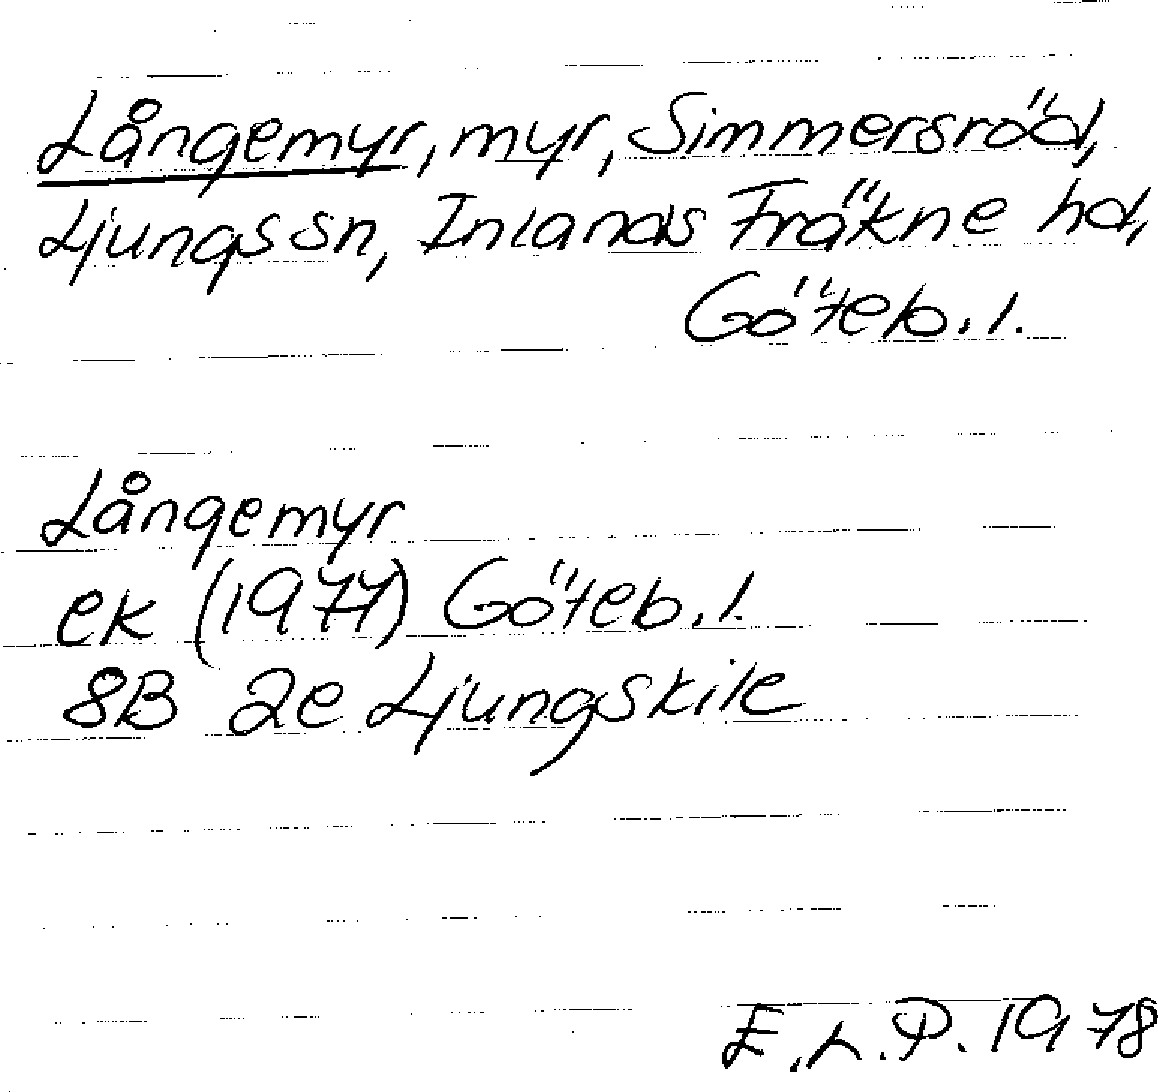 Långemyr, myr, Simmersröd,
Ljungs sn, Inlands Fräkne hd,
Göteb. l.
Långemyr
ek (1977) Göteb. l.
8B 2e Ljungskile
E.L.P. 1978